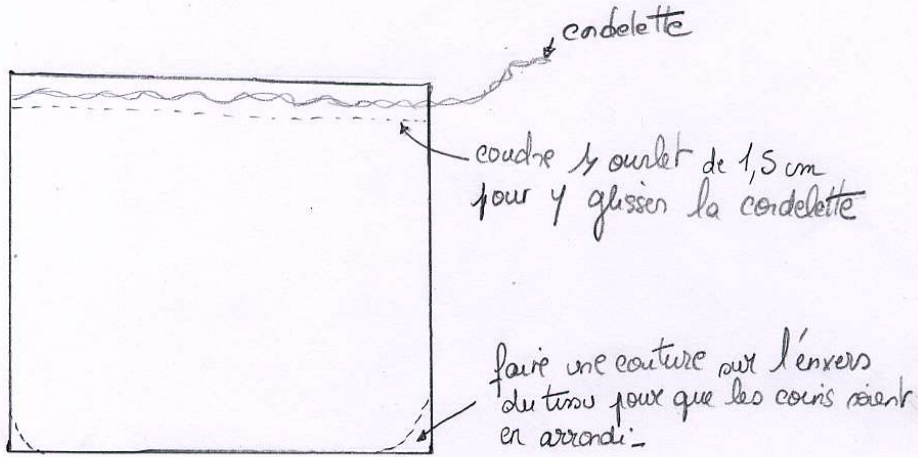 cordelette
coudre 1 ourlet de 1,5 cm
pour y glisser la cordelette
faire une couture sur l'envers
du tissu pour que les coins soient
en arrondi-